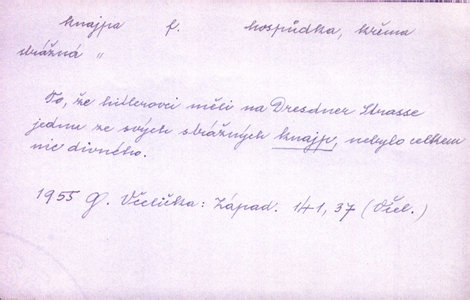 knajpa f. hospůdka, krčma
strážná „
To, že hitlerovci měli na Dresdner Strasse
jednu ze svých strážných knajp, nebylo celkem
nic divného.
1955 G. Včelička: Západ. 141, 37 (Včel.)